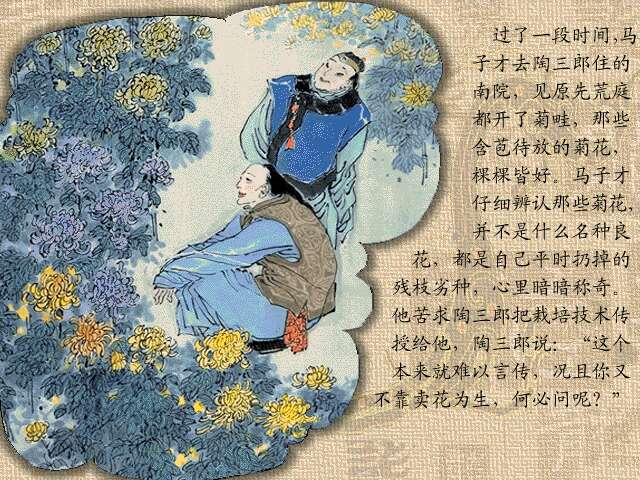 过了一段时间,马
子才去陶三郎住的
南院，见原先荒庭
都开了菊畦，那些
含苞待放的菊花，
棵棵皆好。马子才
仔细辨认那些菊花,
并不是什么名种良
花，都是自己平时扔掉的
残枝劣种，心里暗暗称奇。
他苦求陶三郎把栽培技术传
授给他，陶三郎说：“这个
本来就难以言传，况且你又
不靠卖花为生，何必问呢？”